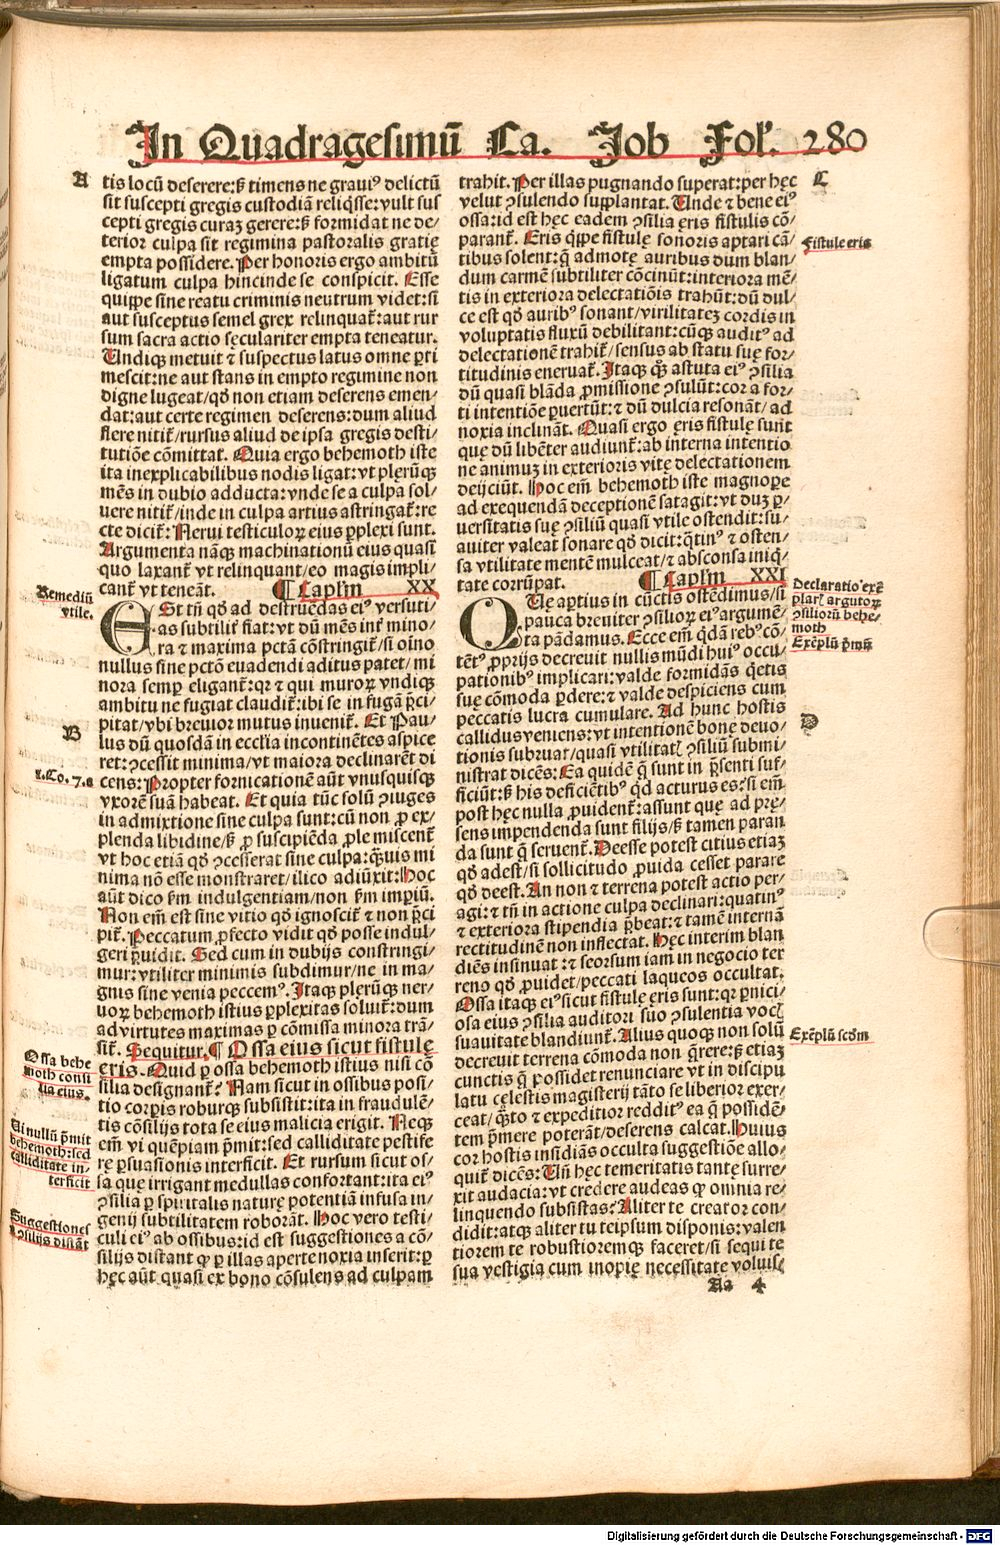 In Quadragesimū Ca. Job Fol'. 280
A
tis locū deserere: sʒ timens ne grauiꝰ delictū
sit suscepti gregis custodiā reliq̄sse: vult sus
cepti gregis curaʒ gerere: sʒ formidat ne de/
terior culpa sit regimina pastoralis gratię
empta possidere. Per honoris ergo ambitū
ligatum culpa hincinde se conspicit. Esse
quippe sine reatu criminis neutrum videt: si
aut susceptus semel grex relinquat̄: aut rur
sum sacra actio sęculariter empta teneatur.
Undiqꝫ metuit ⁊ suspectus latus omne ꝑti
mescit: ne aut stans in empto regimine non
digne lugeat/ qđ non etiam deserens emen/
dat: aut certe regimen deserens: dum aliud
flere nitit̄/ rursus aliud de ipsa gregis desti/
tutiōe cōmittat. Quia ergo behemoth iste
ita inexplicabilibus nodis ligat: vt plęrūqꝫ
mēs in dubio adducta: vnde se a culpa sol/
uere nitit̄/ inde in culpa artius astringat̄: re
cte dicit̄: Nerui testiculoꝝ eius ꝑplexi sunt.
Argumenta nāqꝫ machinationū eius quasi
quo laxant̄ vt relinquant/ eo magis impli/
cant̄ vt teneāt. ¶ Capl'm XX
Remediū
vtile.
ESt tn̄ qđ ad destruēdas eiꝰ versuti/
as subtilit̄ fiat: vt dū mēs int̄ mino/
ra ⁊ maxima pctā cōstringit̄/ si oīno
nullus sine pctō euadendi aditus patet/ mi
nora semꝑ eligant̄: qꝛ ⁊ qui muroꝝ vndiqꝫ
ambitu ne fugiat claudit̄: ibi se in fugā p̄ci/
pitat/ vbi breuior mutus inuenit̄. Et Pau/
B
lus dū quosdā in eccl'ia incontinētes aspice
ret: ꝯcessit minima/ vt maiora declinarēt di
1. Co. 7. a
cens: Propter fornicationē aūt vnusquisqꝫ
vxorē suā habeat. Et quia tūc solū ꝯiuges
in admixtione sine culpa sunt: cū non ꝓ ex/
plenda libidine/ sʒ ꝓ suscipiēda ꝓle miscent̄
vt hoc etiā qđ ꝯcesserat sine culpa: q̄uis mi
nima nō esse monstraret/ ilico adiūxit: Hoc
aūt dico sm̄ indulgentiam/ non sm̄ imperiū.
Non em̄ est sine vitio qđ ignoscit̄ ⁊ non p̄ci
pit̄. Peccatum ꝓfecto vidit qđ posse indul/
geri p̄uidit. Sed cum in dubijs constringi/
mur: vtiliter minimis subdimur/ ne in ma/
gnis sine venia peccemꝰ. Itaqꝫ plęrūqꝫ ner/
uoꝝ behemoth istius ꝑplexitas soluit̄: dum
ad virtutes maximas ꝑ cōmissa minora trā/
sit̄. Sequitur. ¶ Ossa eius sicut fistulę
Ossa behe
moth consi
lia eius.
ęris. Quid ꝑ ossa behemoth istius nisi cō
silia designant̄? Nam sicut in ossibus posi/
tio corꝑis roburqꝫ subsistit: ita in fraudulē/
tis cōsilijs tota se eius malicia erigit. Neqꝫ
Ui nullū p̄mit
behemoth: sed
calliditate in/
terficit
em̄ vi quēpiam p̄mit: sed calliditate pestife
rę ꝑsuasionis interficit. Et rursum sicut os/
sa que irrigant medullas confortant: ita eiꝰ
ꝯsilia ꝑ spiritalis naturę potentiā infusa in/
Suggestiones
a ꝯsilijs distāt
genij subtilitatem roborāt. Hoc vero testi/
culi eiꝰ ab ossibus: id est suggestiones a cō/
silijs distant qꝫ ꝑ illas aperte noxia inserit: ꝑ
hęc aūt quasi ex bono cōsulens ad culpam
trahit. Per illas pugnando superat: per hęc
C
velut ꝯsulendo supplantat. Unde ⁊ bene eiꝰ
ossa: id est hęc eadem ꝯsilia ęris fistulis cō/
parant̄. Ęris q̄ppe fistulę sonoris aptari cā/
Fistule eris
tibus solent: q̄ admotę auribus dum blan/
dum carmē subtiliter cōcinūt: interiora mē/
tis in exteriora delectatiōis trahūt: dū dul/
ce est qđ auribꝰ sonant/ virilitateʒ cordis in
voluptatis fluxū debilitant: cūqꝫ auditꝰ ad
delectationē trahit̄/ sensus ab statu suę for/
titudinis eneruat̄. Itaqꝫ q̄ astuta eiꝰ ꝯsilia
dū quasi blāda ꝓmissione ꝯsulūt: cor a for/
ti intentiōe ꝑuertūt: ⁊ dū dulcia resonāt/ ad
noxia inclināt. Quasi ergo ęris fistulę sunt
quę dū libēter audiunt̄: ab interna intentio
ne animuʒ in exterioris vitę delectationem
deijciūt. Hoc em̄ behemoth iste magnopere
ad exequendā deceptionē satagit: vt duʒ ꝑ/
uersitatis suę ꝯsiliū quasi vtile ostendit: su/
auiter valeat sonare qđ dicit: q̄tinꝰ ⁊ osten/
sa vtilitate mentē mulceat/ ⁊ absconsa iniq̄/
tate corrūpat. ¶ Capl'm XXI
QUę aptius in cūctis ostēdimus/ si
Declaratio exē
plarꝭ argutoꝝ
ꝯsiliorū behe/
moth
Exēplū p̄mū
pauca breuiter ꝯsilioꝝ eiꝰ argumē/
ta pādamus. Ecce em̄ q̄dā rebꝰ cō/
tētꝰ ꝓprijs decreuit nullis mūdi huiꝰ occu/
pationibꝰ implicari: valde formidās q̄etis
suę cōmoda ꝑdere: ⁊ valde despiciens cum
peccatis lucra cumulare. Ad hunc hostis
D
callidus veniens: vt intentionē bonę deuo/
tionis subruat/ quasi vtilitatꝭ ꝯsiliū submi/
nistrat dicēs: Ea quidē q̄ sunt in p̄senti suf/
ficiūt: sʒ his deficiētibꝰ qđ acturus es: si em̄
post hęc nulla ꝓuident̄: assunt quę ad prę/
sens impendenda sunt filijs/ sʒ tamen paran
da sunt q̄ seruent̄. Deesse potest citius etiaʒ
qđ adest/ si sollicitudo ꝓuida cesset parare
qđ deest. An non ⁊ terrena potest actio per/
agi: ⁊ tn̄ in actione culpa declinari: quatinꝰ
⁊ exteriora stipendia p̄beat: ⁊ tamē internā
rectitudinē non inflectat. Hęc interim blan
diēs insinuat: ⁊ seorsum iam in negocio ter
reno qđ ꝓuidet/ peccati laqueos occultat.
Ossa itaqꝫ eiꝰ sicut fistulę ęris sunt: qꝛ ꝑnici/
osa eius ꝯsilia auditori suo ꝯsulentia vocꝭ
suauitate blandiunt̄. Alius quoqꝫ non solū
Exēplū scđm
decreuit terrena cōmoda non q̄rere: sʒ etiaʒ
cunctis q̄ possidet renunciare vt in discipu
latu cęlestis magisterij tāto se liberior exer/
ceat/ q̄to ⁊ expeditior redditꝰ ea q̄ possidē/
tem p̄mere poterāt/ deserens calcat. Huius
cor hostis insidiās occulta suggestiōe allo/
quit̄ dicēs: Un̄ hęc temeritatis tantę surre/
xit audacia: vt credere audeas qꝫ omnia re/
linquendo subsistas? Aliter te creator con/
didit: atqꝫ aliter tu teipsum disponis: valen
tiorem te robustioremqꝫ faceret/ si sequi te
sua vestigia cum inopię necessitate voluis/
Aa 4
Digitalisierung gefördert durch die Deutsche Forschungsgemeinschaft - DFG